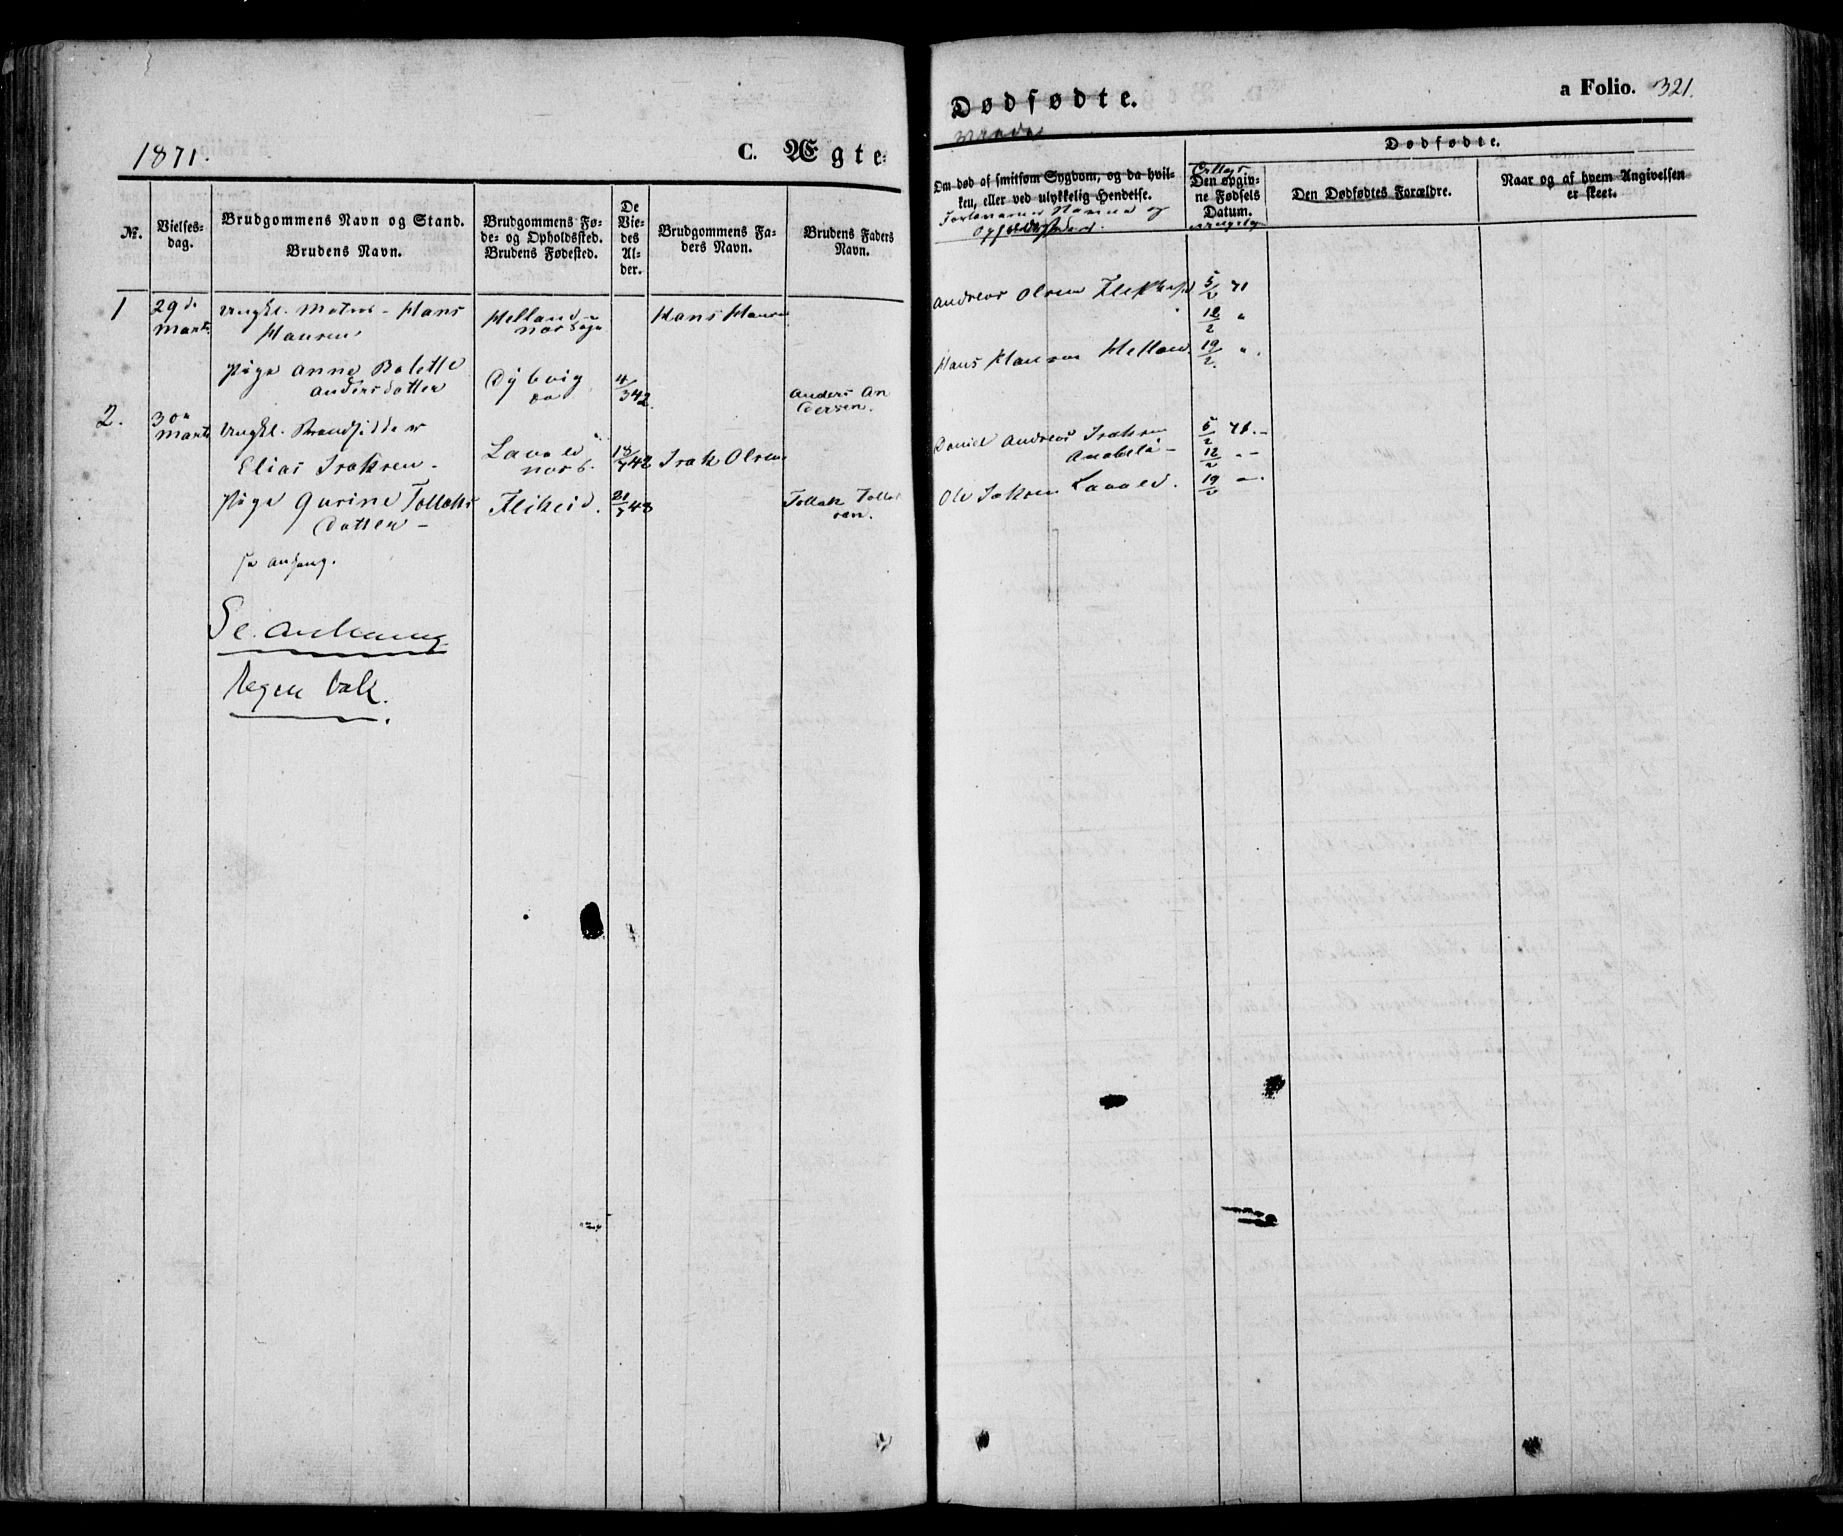 1871.
C. Ægte-
№.
Vielses-
dag.
Brudgommens Navn og Stand.
Brudens Navn.
Brudgommens Fø-
de- og Opholdssted.
Brudens Fødested.
De
Vie-
des
Al-
der.
Brudgommens Fa-
ders Navn.
Brudens Faders
Navn.
1
29de
Marts
Ungkl. Matros - Hans
Hansen
Helland
Hans Hansen
Pige Anne Bolette
Andersdatter
Dybvig
4/3 42.
Anders An
dersen.
2.
30
Marts
Ungkl.
Elias Isaksen -
Lavold
18/7 42
Isak Olsen
Pige Gurine Tollaks
Datter -
Fleikeid.
21/7 43
Tollak Tollak
sen.
Se. anhenning
bagen bak.
Dødfødte.
a Folio. 321.
Om død af smitsom Sygdom, og da hvil-
ken, eller ved ulykkelig Hendelse.
Forlovernes Navne og
Opholdssted.
Dødfødte.
Den opgiv-
ne Fødsels
Datum.
Den Dødfødtes Forældre.
Naar og af hvem Angivelsen
er skeet.
Andreas Olsen
5/2 71
12/2 "
Hans Hansen Helland
19/2 ".
Daniel Andreas Isaksen
5/2 71. -
12/2 " -
Ole Isaksen Lavold.
19/2 ".